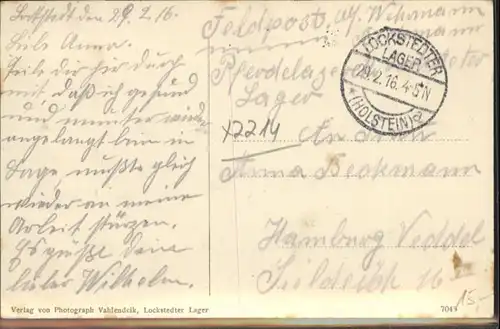 Lockstedt den 29.2.16.
Liebe Anna.
Teile dir hir durch
mit daß ich gesund
und munter wieder
angelangt bin im
Lage mußte gleich
wieder an meine
Arbeit stürzen.
Es grüßt deine
lieber Wilhelm.
Feldpost. Wehrmann
Pferdelage
Lager
LOCKSTEDTER
LAGER
29.2.16.4-5N
*(HOLSTEIN)
x2214
An Frau
Anna Beckmann
Hamburg Veddel
15-
Verlag von Photograph Vahlendeik, Lockstedter Lager
7049